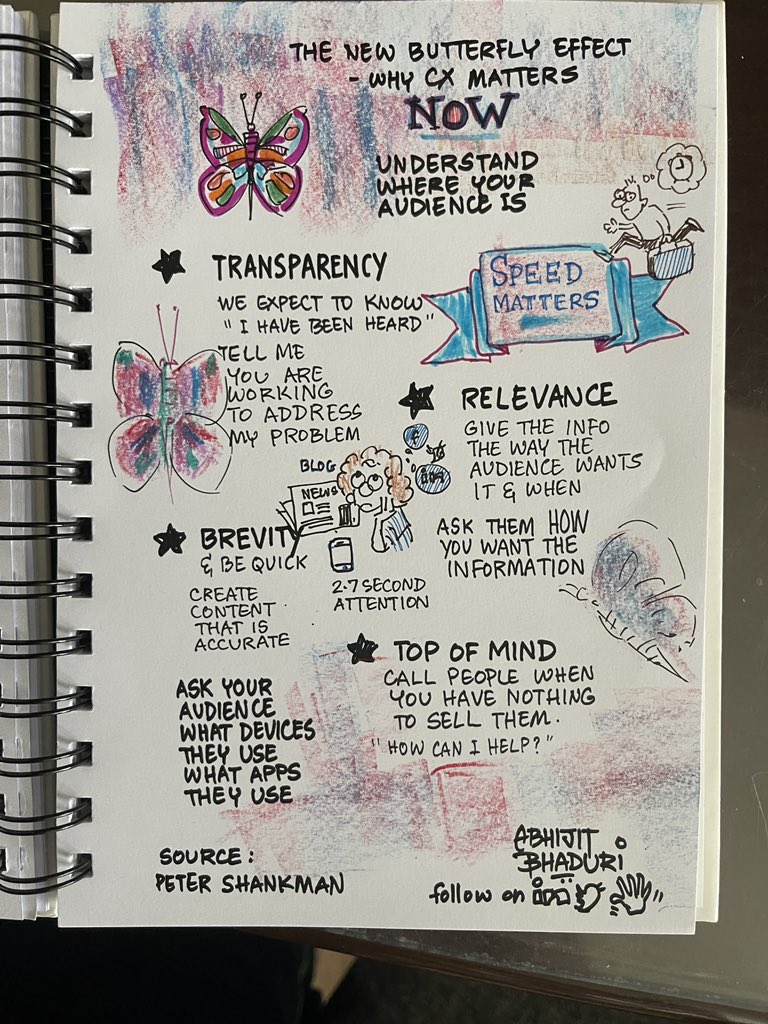 THE NEW BUTTERFLY EFFECT
- WHY CX MATTERS
NOW
UNDERSTAND
WHERE YOUR
AUDIENCE IS
SPEED
MATTERS
TRANSPARENCY
WE EXPECT TO KNOW
"I HAVE BEEN HEARD"
TELL ME
YOU ARE
WORKING
TO ADDRESS
MY PROBLEM
RELEVANCE
GIVE THE INFO
THE WAY THE
AUDIENCE WANTS
IT & WHEN
ASK THEM HOW
YOU WANT THE
INFORMATION
BLOG
NEWS
f
in
BREVITY
& BE QUICK
CREATE
CONTENT
THAT IS
ACCURATE
2.7 SECOND
ATTENTION
TOP OF MIND
CALL PEOPLE WHEN
YOU HAVE NOTHING
TO SELL THEM.
"HOW CAN I HELP?"
ASK YOUR
AUDIENCE
WHAT DEVICES
THEY USE
WHAT APPS
THEY USE
SOURCE:
PETER SHANKMAN
ABHIJIT
BHADURI
follow on in